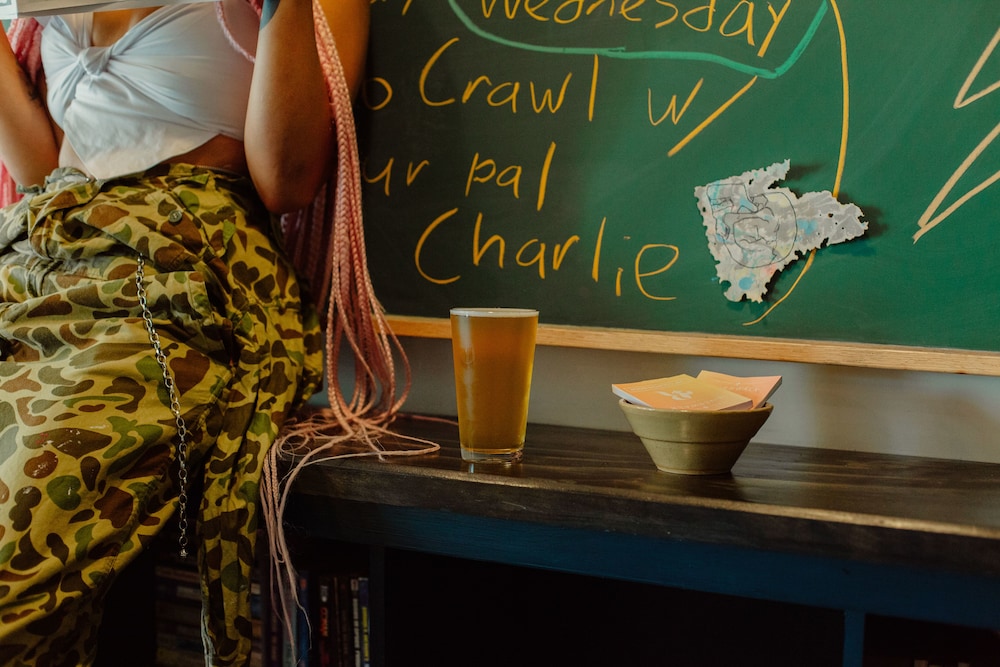 Wednesday
Crawl w/
ur pal
Charlie